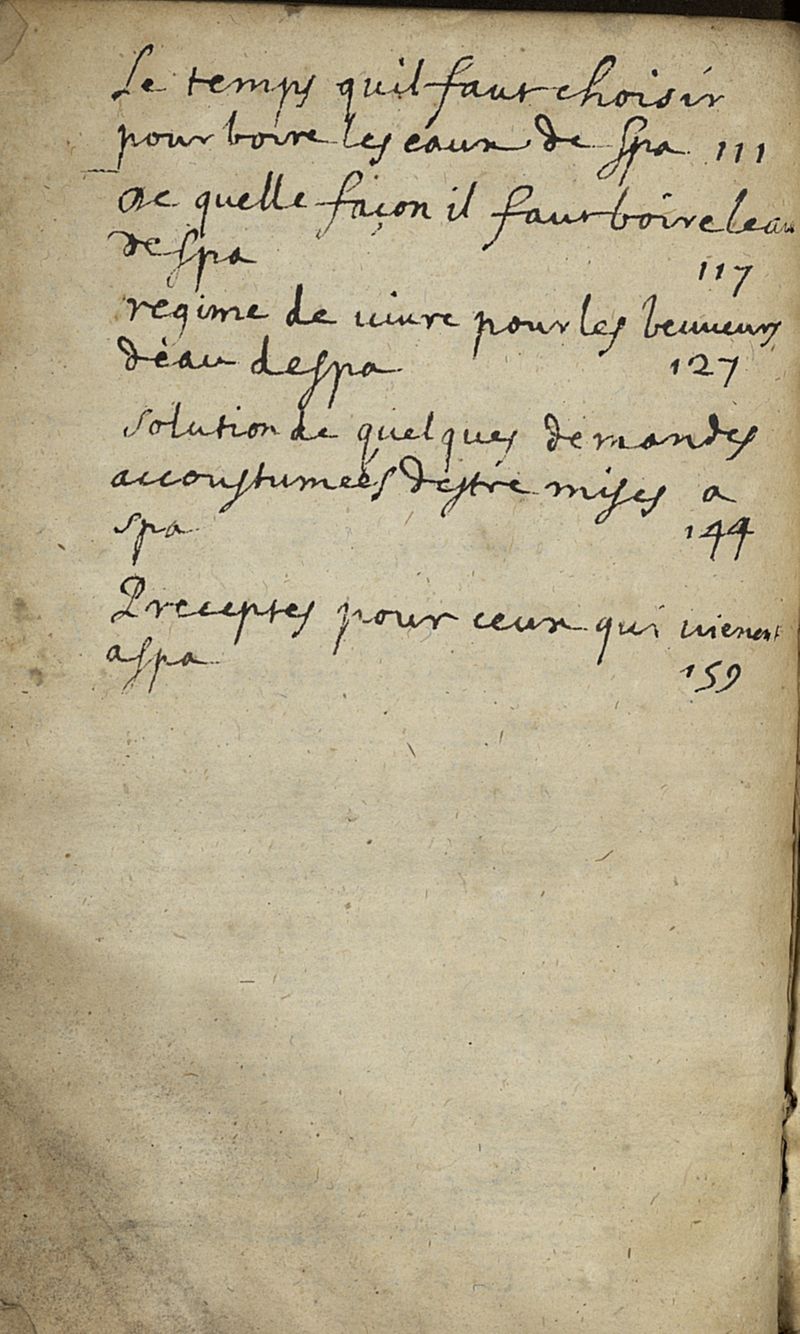 Le temps quil faut choisir
pour boire les eaux de Spa 111
De quelle façon il faut boire leau
de spa 117
regime de uiure pour les beuueurs
déau de spa 127
solution de quelques demandes
accoustumeés destre mises a
spa 144
Preceptes pour ceux qui uienent
a spa 159